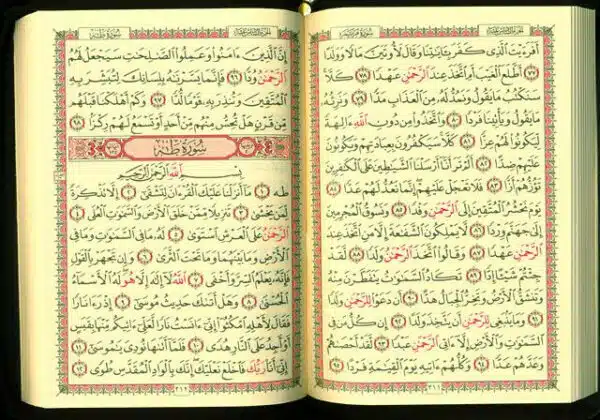 الجزء السادس عشر سورة مريم
أَفَرَءَيْتَ الَّذِى كَفَرَ بِـَٔايَـٰتِنَا وَقَالَ لَأُوتَيَنَّ مَالًا وَوَلَدًا
٧٧ أَطَّلَعَ الْغَيْبَ أَمِ اتَّخَذَ عِندَ الرَّحْمَـٰنِ عَهْدًا ٧٨ كَلَّا
سَنَكْتُبُ مَا يَقُولُ وَنَمُدُّ لَهُ مِنَ الْعَذَابِ مَدًّا ٧٩ وَنَرِثُهُ
مَا يَقُولُ وَيَأْتِينَا فَرْدًا ٨٠ وَاتَّخَذُوا مِن دُونِ اللَّهِ ءَالِهَةً
لِّيَكُونُوا لَهُمْ عِزًّا ٨١ كَلَّا سَيَكْفُرُونَ بِعِبَادَتِهِمْ وَيَكُونُونَ
عَلَيْهِمْ ضِدًّا ٨٢ أَلَمْ تَرَ أَنَّا أَرْسَلْنَا الشَّيَـٰطِينَ عَلَى الْكَـٰفِرِينَ
تَؤُزُّهُمْ أَزًّا ٨٣ فَلَا تَعْجَلْ عَلَيْهِمْ إِنَّمَا نَعُدُّ لَهُمْ عَدًّا ٨٤
يَوْمَ نَحْشُرُ الْمُتَّقِينَ إِلَى الرَّحْمَـٰنِ وَفْدًا ٨٥ وَنَسُوقُ الْمُجْرِمِينَ
إِلَى جَهَنَّمَ وِرْدًا ٨٦ لَّا يَمْلِكُونَ الشَّفَـٰعَةَ إِلَّا مَنِ اتَّخَذَ عِندَ
الرَّحْمَـٰنِ عَهْدًا ٨٧ وَقَالُوا اتَّخَذَ الرَّحْمَـٰنُ وَلَدًا ٨٨ لَّقَدْ
جِئْتُمْ شَيْـًٔا إِدًّا ٨٩ تَكَادُ السَّمَـٰوَٰتُ يَتَفَطَّرْنَ مِنْهُ
وَتَنشَقُّ الْأَرْضُ وَتَخِرُّ الْجِبَالُ هَدًّا ٩٠ أَن دَعَوْا لِلرَّحْمَـٰنِ وَلَدًا
٩١ وَمَا يَنبَغِى لِلرَّحْمَـٰنِ أَن يَتَّخِذَ وَلَدًا ٩٢ إِن كُلُّ مَن فِى
السَّمَـٰوَٰتِ وَالْأَرْضِ إِلَّا ءَاتِى الرَّحْمَـٰنِ عَبْدًا ٩٣ لَّقَدْ أَحْصَىٰهُمْ
وَعَدَّهُمْ عَدًّا ٩٤ وَكُلُّهُمْ ءَاتِيهِ يَوْمَ الْقِيَـٰمَةِ فَرْدًا ٩٥
٣١١
الجزء السادس عشر سورة طه
إِنَّ الَّذِينَ ءَامَنُوا وَعَمِلُوا الصَّـٰلِحَـٰتِ سَيَجْعَلُ لَهُمُ
الرَّحْمَـٰنُ وُدًّا ٩٦ فَإِنَّمَا يَسَّرْنَـٰهُ بِلِسَانِكَ لِتُبَشِّرَ بِهِ
الْمُتَّقِينَ وَتُنذِرَ بِهِ قَوْمًا لُّدًّا ٩٧ وَكَمْ أَهْلَكْنَا قَبْلَهُم
مِّن قَرْنٍ هَلْ تُحِسُّ مِنْهُم مِّنْ أَحَدٍ أَوْ تَسْمَعُ لَهُمْ رِكْزًا ٩٨
سُورَةُ طه
بِسْمِ اللَّهِ الرَّحْمَـٰنِ الرَّحِيمِ
طه ١ مَا أَنزَلْنَا عَلَيْكَ الْقُرْءَانَ لِتَشْقَىٰ ٢ إِلَّا تَذْكِرَةً
لِّمَن يَخْشَىٰ ٣ تَنزِيلًا مِّمَّنْ خَلَقَ الْأَرْضَ وَالسَّمَـٰوَٰتِ الْعُلَى ٤
الرَّحْمَـٰنُ عَلَى الْعَرْشِ اسْتَوَىٰ ٥ لَهُ مَا فِى السَّمَـٰوَٰتِ وَمَا فِى
الْأَرْضِ وَمَا بَيْنَهُمَا وَمَا تَحْتَ الثَّرَىٰ ٦ وَإِن تَجْهَرْ بِالْقَوْلِ
فَإِنَّهُ يَعْلَمُ السِّرَّ وَأَخْفَى ٧ اللَّهُ لَا إِلَـٰهَ إِلَّا هُوَ لَهُ الْأَسْمَاءُ
الْحُسْنَىٰ ٨ وَهَلْ أَتَىٰكَ حَدِيثُ مُوسَىٰ ٩ إِذْ رَءَا نَارًا
فَقَالَ لِأَهْلِهِ امْكُثُوا إِنِّى ءَانَسْتُ نَارًا لَّعَلِّى ءَاتِيكُم مِّنْهَا بِقَبَسٍ
أَوْ أَجِدُ عَلَى النَّارِ هُدًى ١٠ فَلَمَّا أَتَىٰهَا نُودِىَ يَـٰمُوسَىٰ ١١
إِنِّى أَنَا رَبُّكَ فَاخْلَعْ نَعْلَيْكَ إِنَّكَ بِالْوَادِ الْمُقَدَّسِ طُوًى ١٢
٣١٢